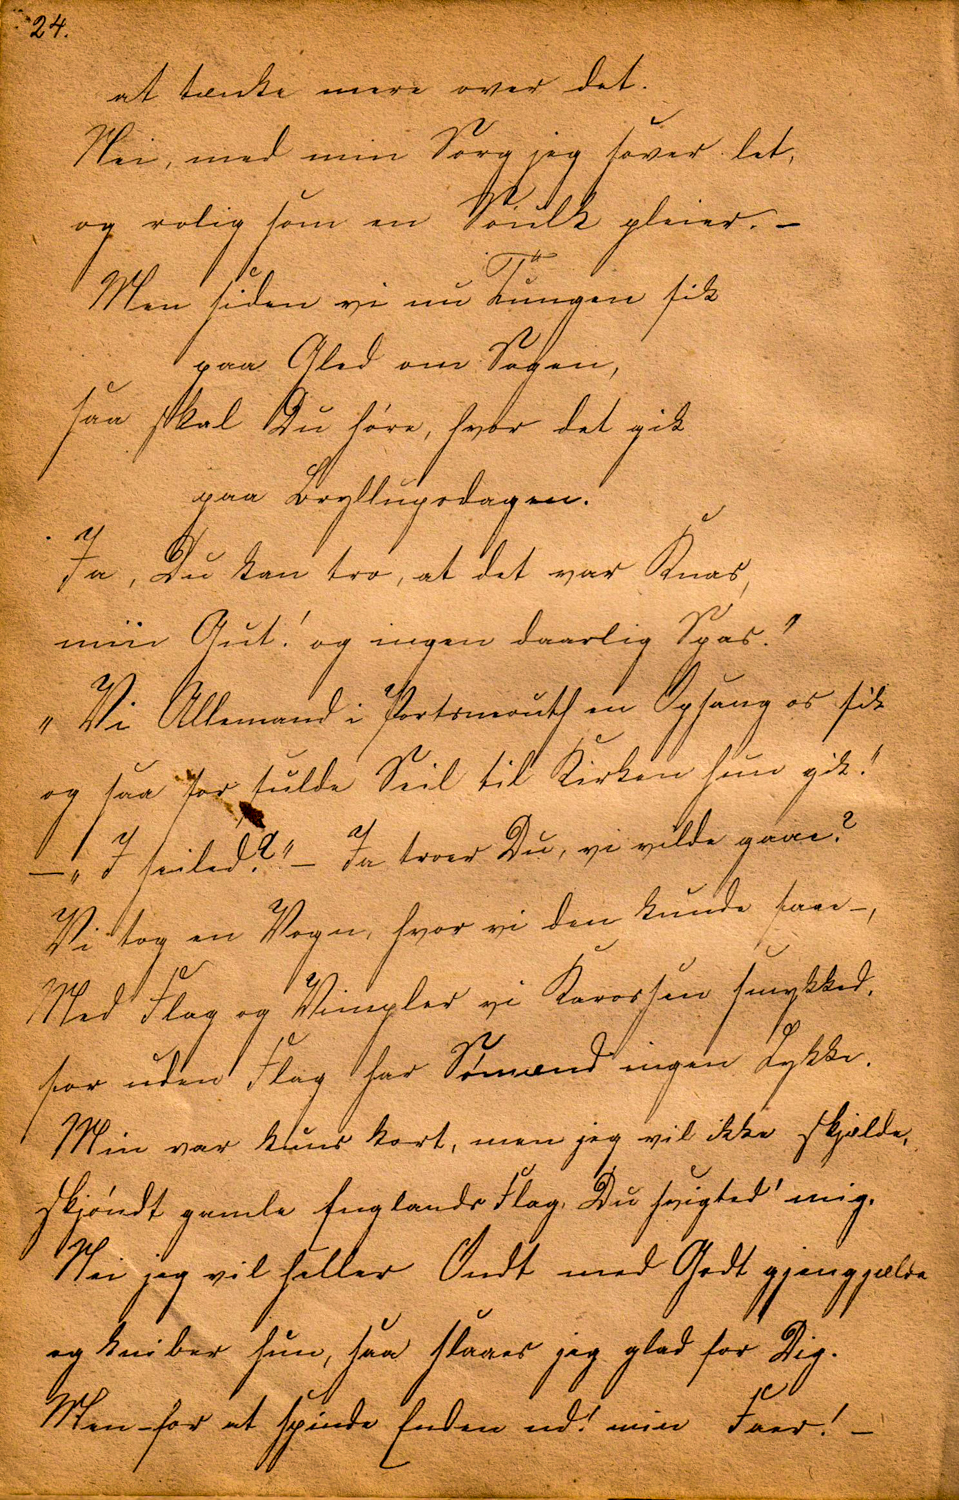 24.
at tænke mere over det.
Nei, med min Sorg jeg sover let,
og rolig som en Soulk pleier. —
Men siden vi nu Tungen fik
paa Gled om Sagen,
saa skal Du høre, hvor det gik
paa Bryllupsdagen.
Ja, Du kan tro, at det var Knas,
miin Gut! og ingen daarlig Spas!"
„Vi Allemand i Portsmouth en Opsang os fik
og saa for fulde Seil til Kirken hun gik!"
— „I seiled?" — Ja troer Du, vi vilde gaae?
Vi tog en Vogn, hvor vi den kunde faae —,
Med Flag og Vimpler vi Karossen smykked,
for uden Flag har Sømænd ingen Lykke.
Min var kuns kort, men jeg vil ikke skjælde,
skjøndt gamle Englands Flag, Du svigted' mig.
Nei jeg vil heller Ondt med Godt gjengjælde
og kniber hun, saa slaaes jeg glad for Dig.
Men for at spinde Enden ud! min Faer! —